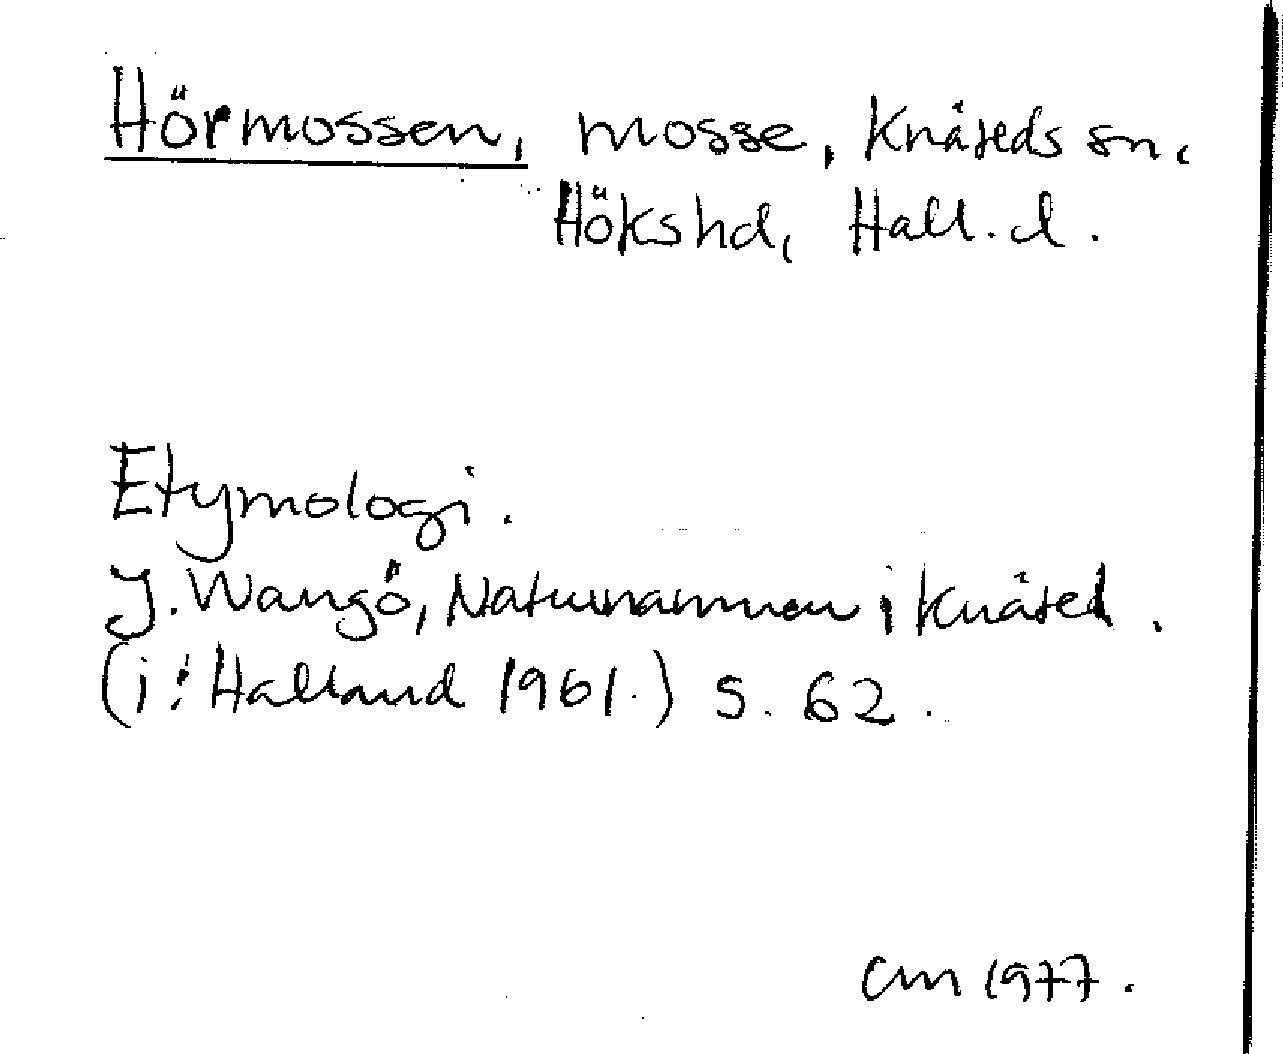 Hörmossen, mosse, Knäreds sn,
Hökshd, Hall.d.
Etymologi.
J. Wangö, Naturnamnen i Knäred.
(i: Halland 1961.) S. 62.
CM 1977.